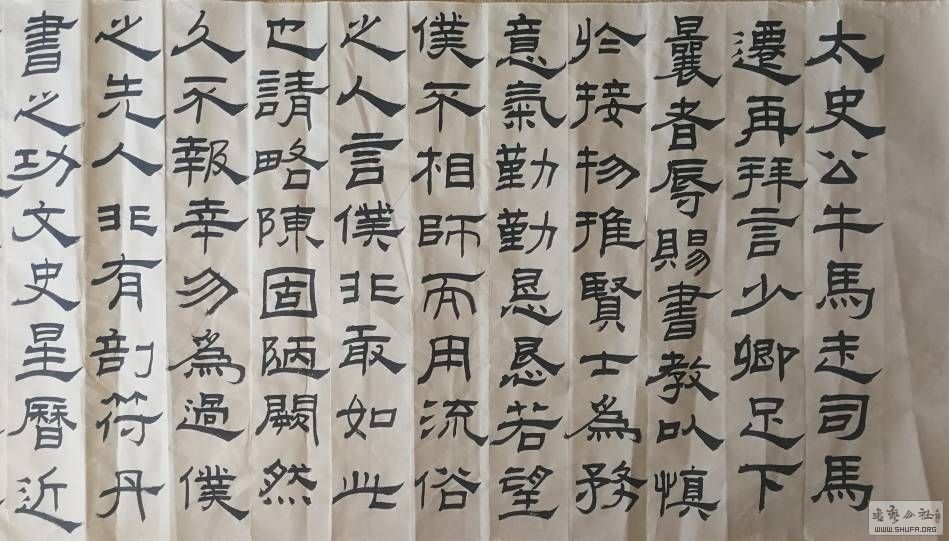 太史公牛馬走司馬
遷再拜言少卿足下
曩者辱賜書教以慎
於接物推賢士為務
意氣勤勤恳恳若望
僕不相師而用流俗
之人言僕非敢如此
也請略陳固陋闕然
久不報幸勿為過僕
之先人非有剖符丹
書之功文史星曆近
书艺公社
WWW.SHUFA.ORG